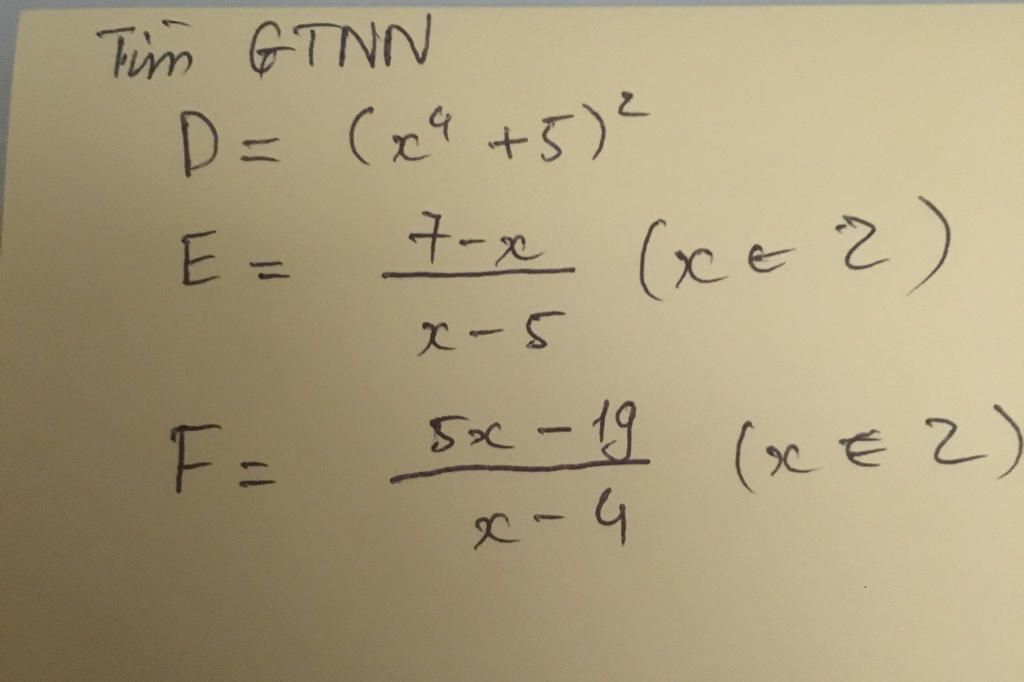 Tìm GTNN
D = (x⁴ + 5)²
E = \frac{7-x}{x-5} (x ∈ Z)
F = \frac{5x-19}{x-4} (x ∈ Z)